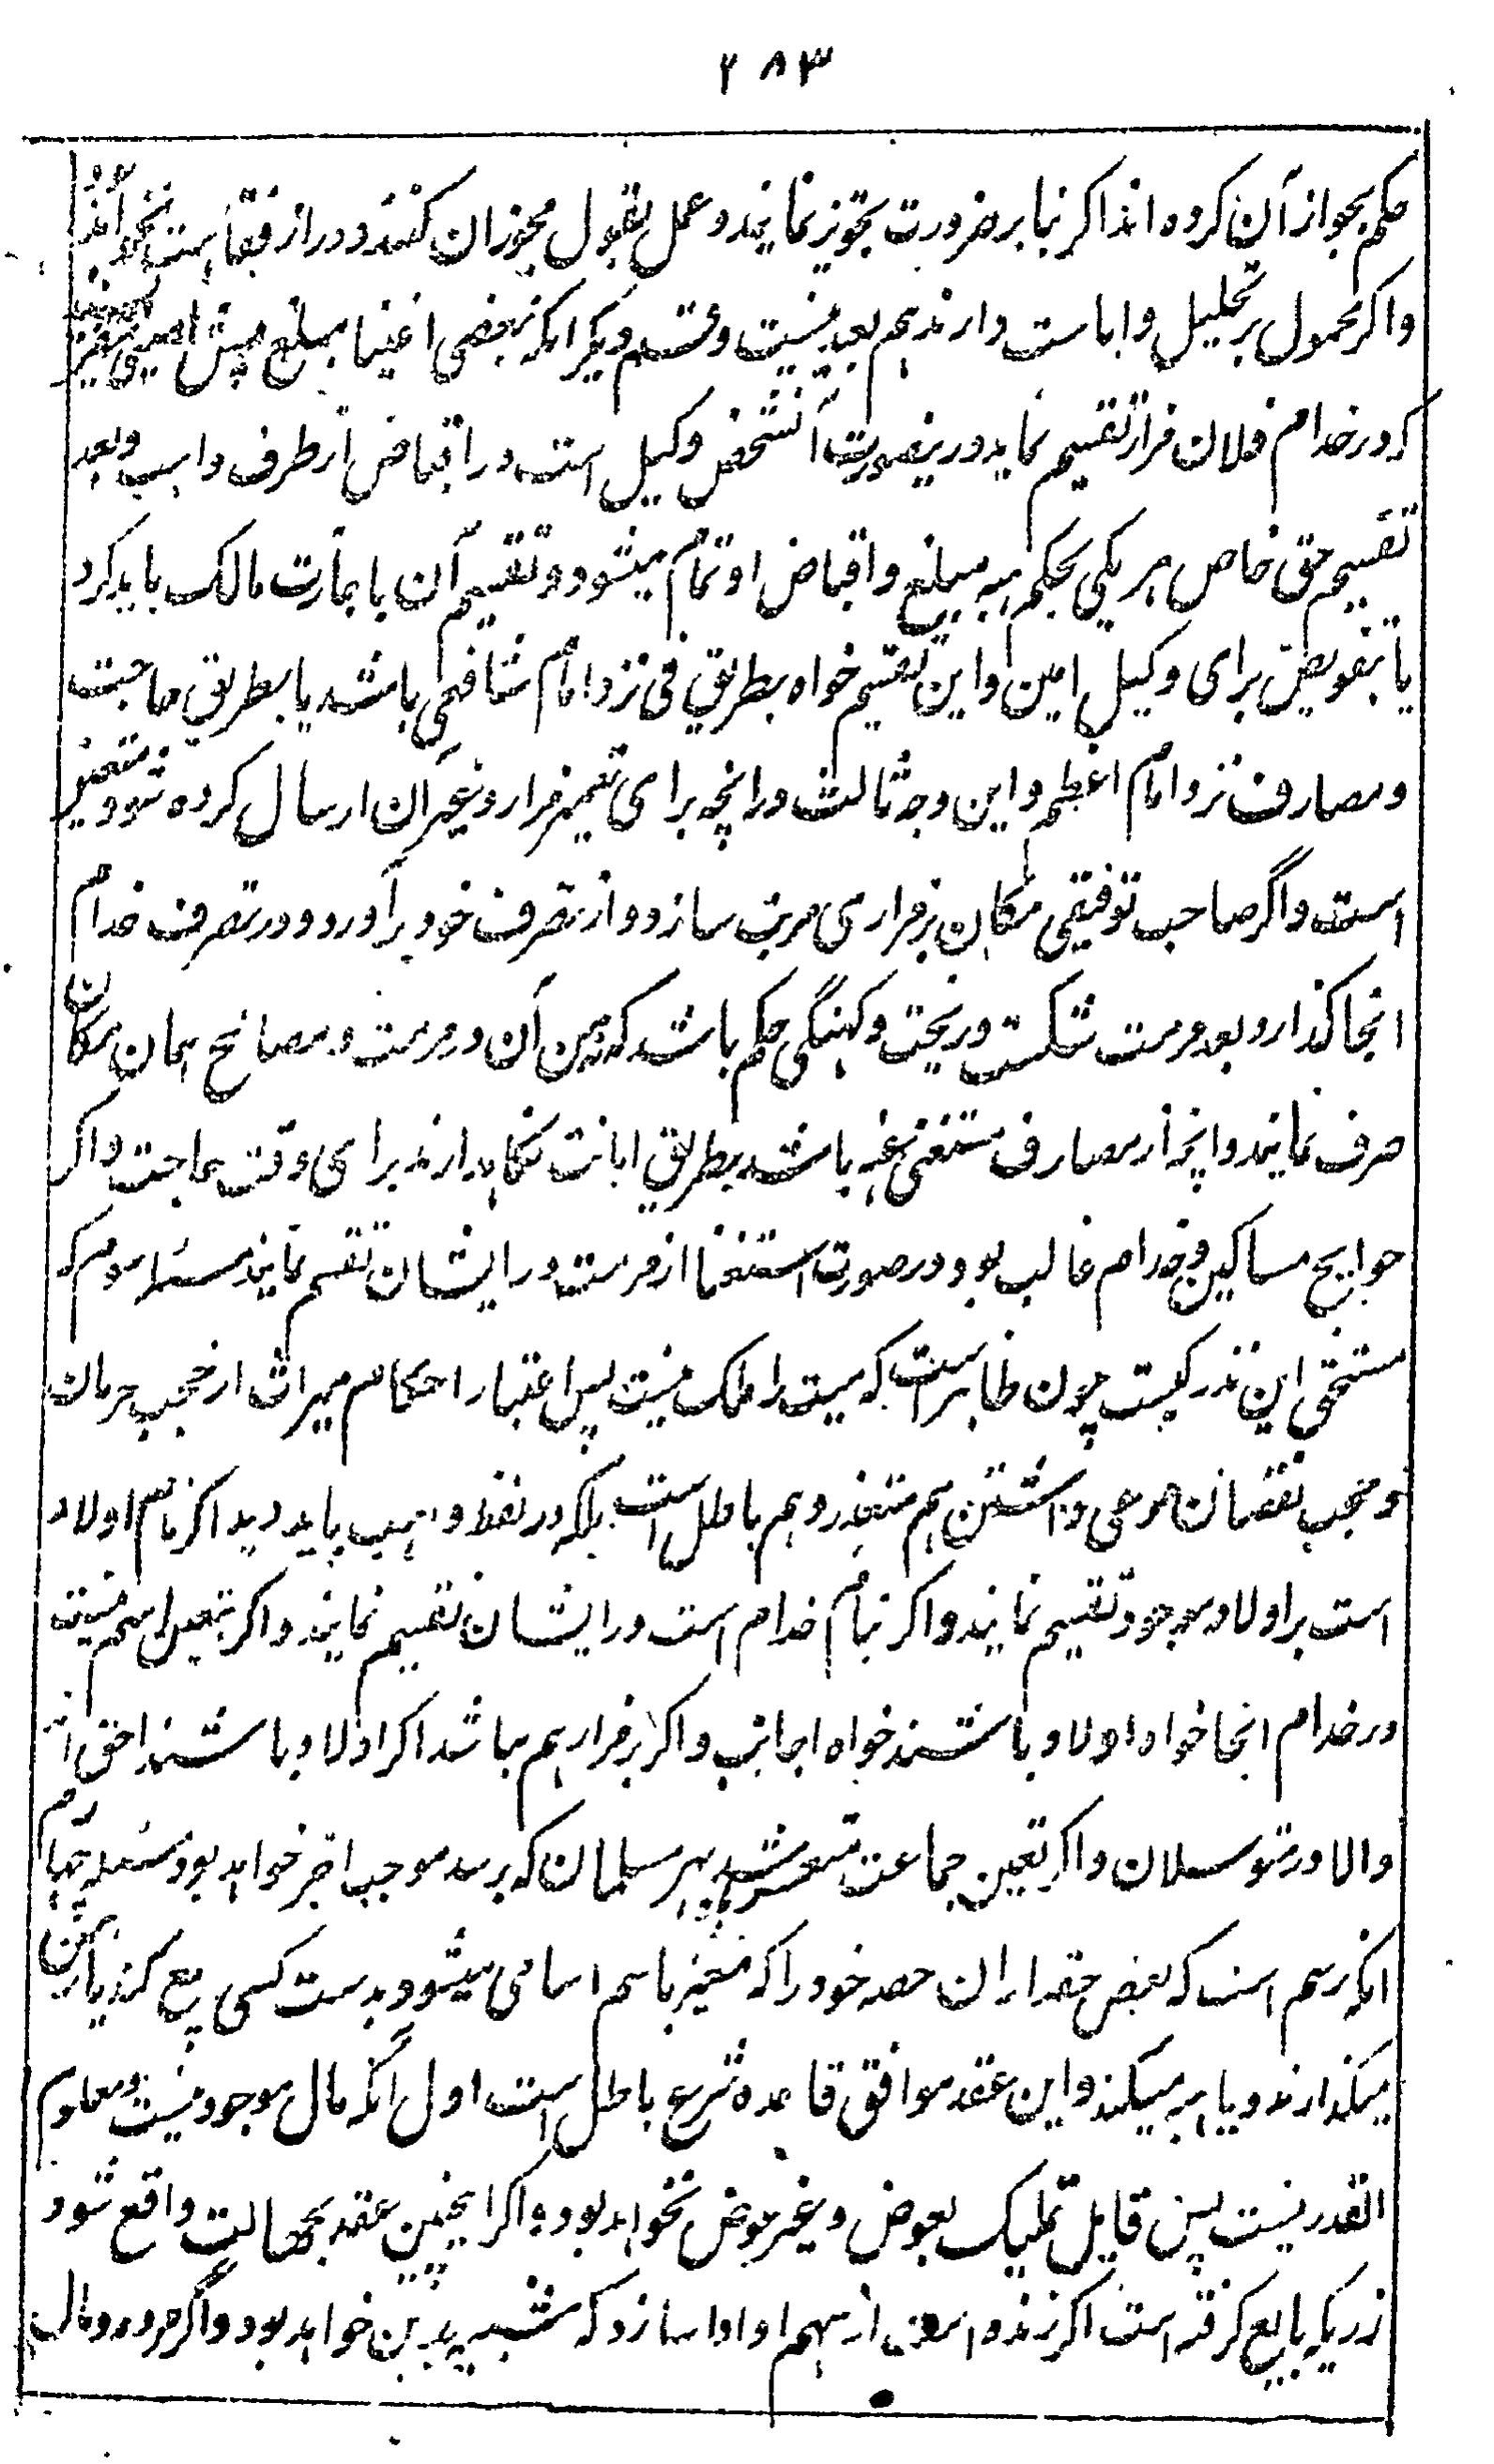 ۲۸۳
حکم بجواز آن کرده اند اکر بنا بر ضرورت تجویز نمایند و عمل بقول مجوزان کنند دور از فقاهت نخواهد
واکر محمول بر تحلیل و اباحت دارند هم بعید نیست وقسم دیکر انکه بعضی اغنیا مبلغ پیش امینی میفرستند
که در خدام فلان مزار تقسیم نماید درینصورت آنشخص وکیل است در اقباض از طرف واهب و بعد
تقسیم حق خاص هر یکی بحکم هبه مبلغ و اقباض او تمام میشود و تقسیم آن با جازت مالک باید کرد
یا بتفویض برای وکیل امین و این تقسیم خواه بطریق فی نزد امام شافعی باشد یا بطریق حاجت
ومصارف نزد امام اعظم و این وجه ثالث ورانچه برای تعمیر مزار و غیر آن ارسال کرده شود متعین
است واگر صاحب توفیقی مکان بر مزاری مرتب سازد و از تصرف خود برآورد و در تصرف خدام
انجا کذارد بعد مرمت شکست وریخت و کهنگی حکم باشد که ثمن آن در مرمت و مصالح همان مکان
صرف نمایند وانچه از مصارف مستغنی عنه باشد بطریق امانت نکاهدارند برای وقت حاجت واکر
حوایج مساکین و خدام غالب بود در صورت استغنا از مرمت در ایشان تقسیم نمایند مسئله سوم که
مستحق این نذر کیست چون ظاهر است که میت را ملک نیست پس اعتبار احکام میراث از حجب حرمان
و حجب نقصان مرعی داشتن هم متعذر و هم باطل است بلکه در لفظ واهب باید دید اکر بنام اولاد
است بر اولاد موجود تقسیم نمایند واکر بنام خدام است در ایشان تقسیم نمایند واکر بتعین اسم نیست
در خدام انجا خواه اولاد باشند خواه اجانب واکر بر مزار هم نباشد اکر اولاد باشند احق اند
والا در متوسلان واکر تعین جماعت متعسر شد بهر مسلمان که برسد موجب اجر خواهد بود مسئله چهارم
انکه رسم است که بعض حقداران حصه خود را که متمیز باسم اسامی میشود بدست کسی بیع کنند یا رهن
میکذارند و یا هبه میکنند و این عقد موافق قاعده شرع باطل است اول انکه مال موجود نیست و معلوم
القدر نیست پس قابل تملیک بعوض و غیر عوض نخواهد بود واکر اینچنین عقد بجهالت واقع شود
زریکه بایع کرفته است اکر زنده است از سهم او ادا سازد که مشبه بدین خواهد بود واگر مرده و مال